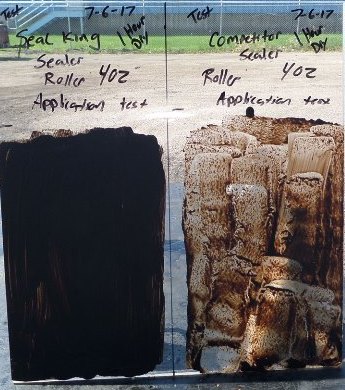 Test 7-6-17
Seal King 1 Hour
Sealer DIY
Roller 4oz
Application test
Test 7-6-17
Competitor 1 Hour
Sealer DIY
Roller 4oz
Application test